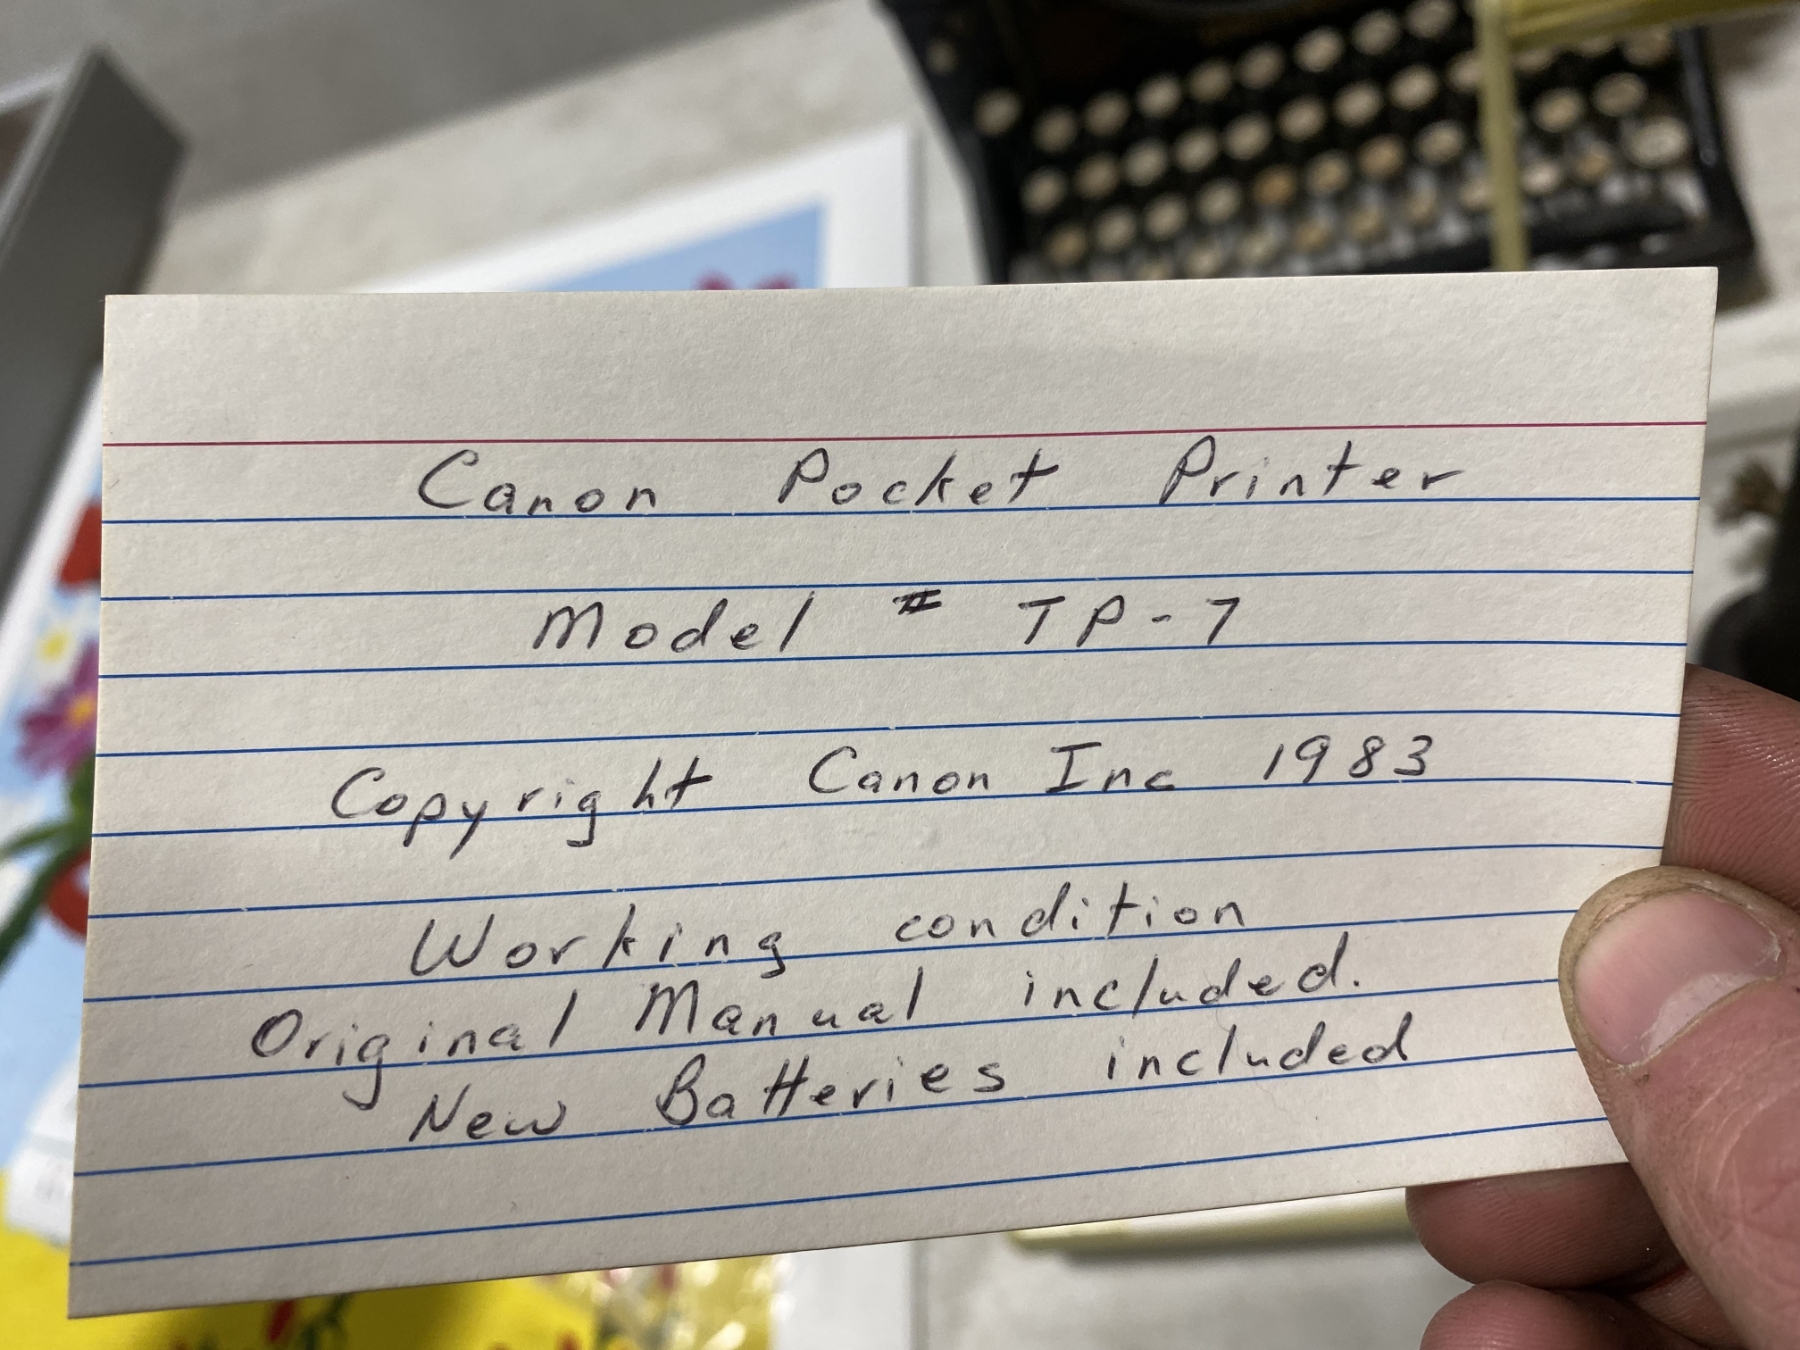 Canon Pocket Printer
Model # TP-7
Copyright Canon Inc 1983
Working condition
Original Manual included.
New Batteries included